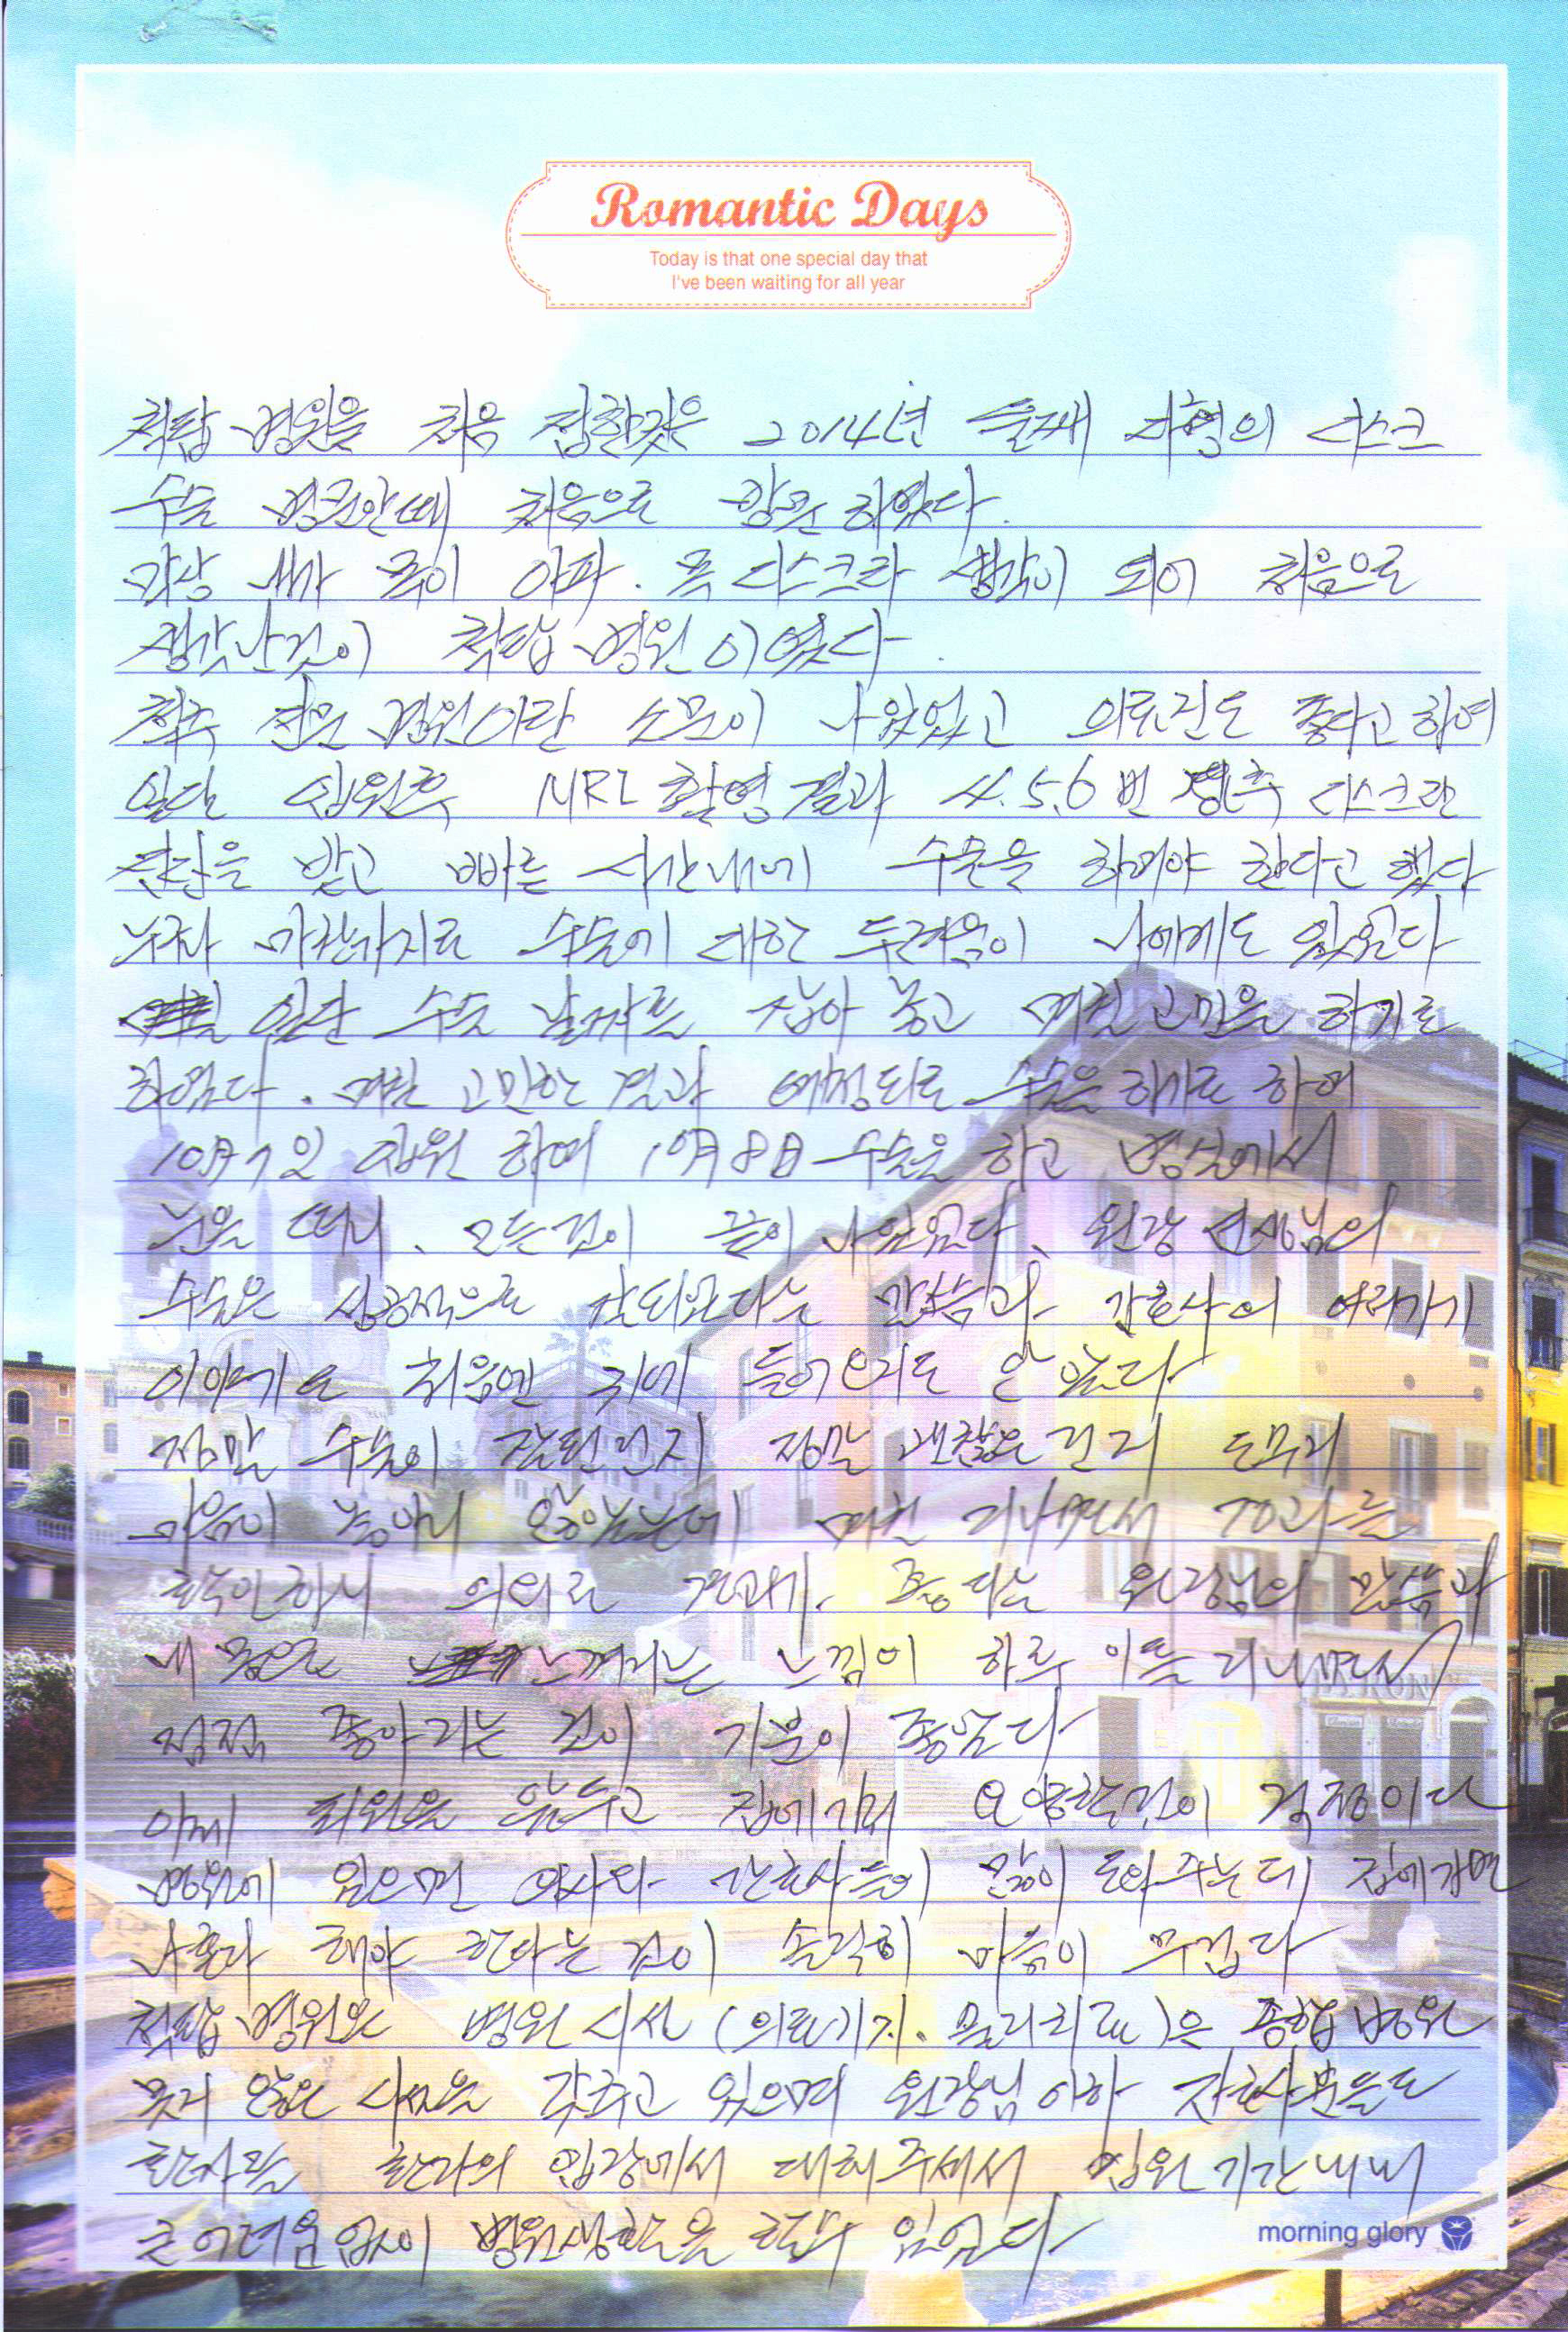 Romantic Days
Today is that one special day that
I've been waiting for all year
척탑 병원을 처음 접한것은 2014년 둘째 디스크
수술 병문안때 처음으로 방문 하였다.
막상 내가 목이 아파. 목 디스크라 생각이 되어 처음으로
생각난것이 척탑 병원 이였다.
척추 전문 병원이란 소문이 나있었고 의료진도 좋다고 하여
일단 입원후 MRI 촬영 결과 4.5.6번 경추 디스크란
진단을 받고 빠른 시간내에 수술을 하여야 한다고 했다
누구나 마찬가지로 수술에 대한 두려움이 나에게도 있었다
일단 수술 날짜를 잡아 놓고 며칠 고민을 하기로
하였다. 며칠 고민한 결과 예정되로 수술을 하기로 하여
10月7일 입원 하여 10月8日 수술을 하고 병실에서
눈을 떠니. 모든것이 끝이 나있었다. 원장 선생님의
수술은 성공적으로 잘되었다는 말씀과 간호사의 여러가지
이야기도 처음엔 귀에 들어오지도 안았다
정말 수술이 잘된건지 정말 괜찮은건지 도무지
마음이 놓이지 않았는데 며칠 지나면서 결과를
확인하니 의외로 결과가. 좋다는 원장님의 말씀과
내 몸으로 느껴지는 느낌이 하루 이틀 지나면서
점점 좋아지는 것이 기분이 좋았다
이제 퇴원을 앞두고 집에가서 요양할것이 걱정이다
병원에 있으면 의사와 간호사들이 많이 도와주는데 집에가면
나혼자 해야 한다는 것이 솔직히 마음이 무겁다
척탑 병원은 병원 시설 (의료기기. 물리치료)은 종합병원
못지 않은 시설을 갖추고 있으며 원장님 이하 간호사분들도
환자를 환자의 입장에서 대해 주셔서 입원 기간내내
큰 어려움 없이 병원생활을 할수 있었다
morning glory